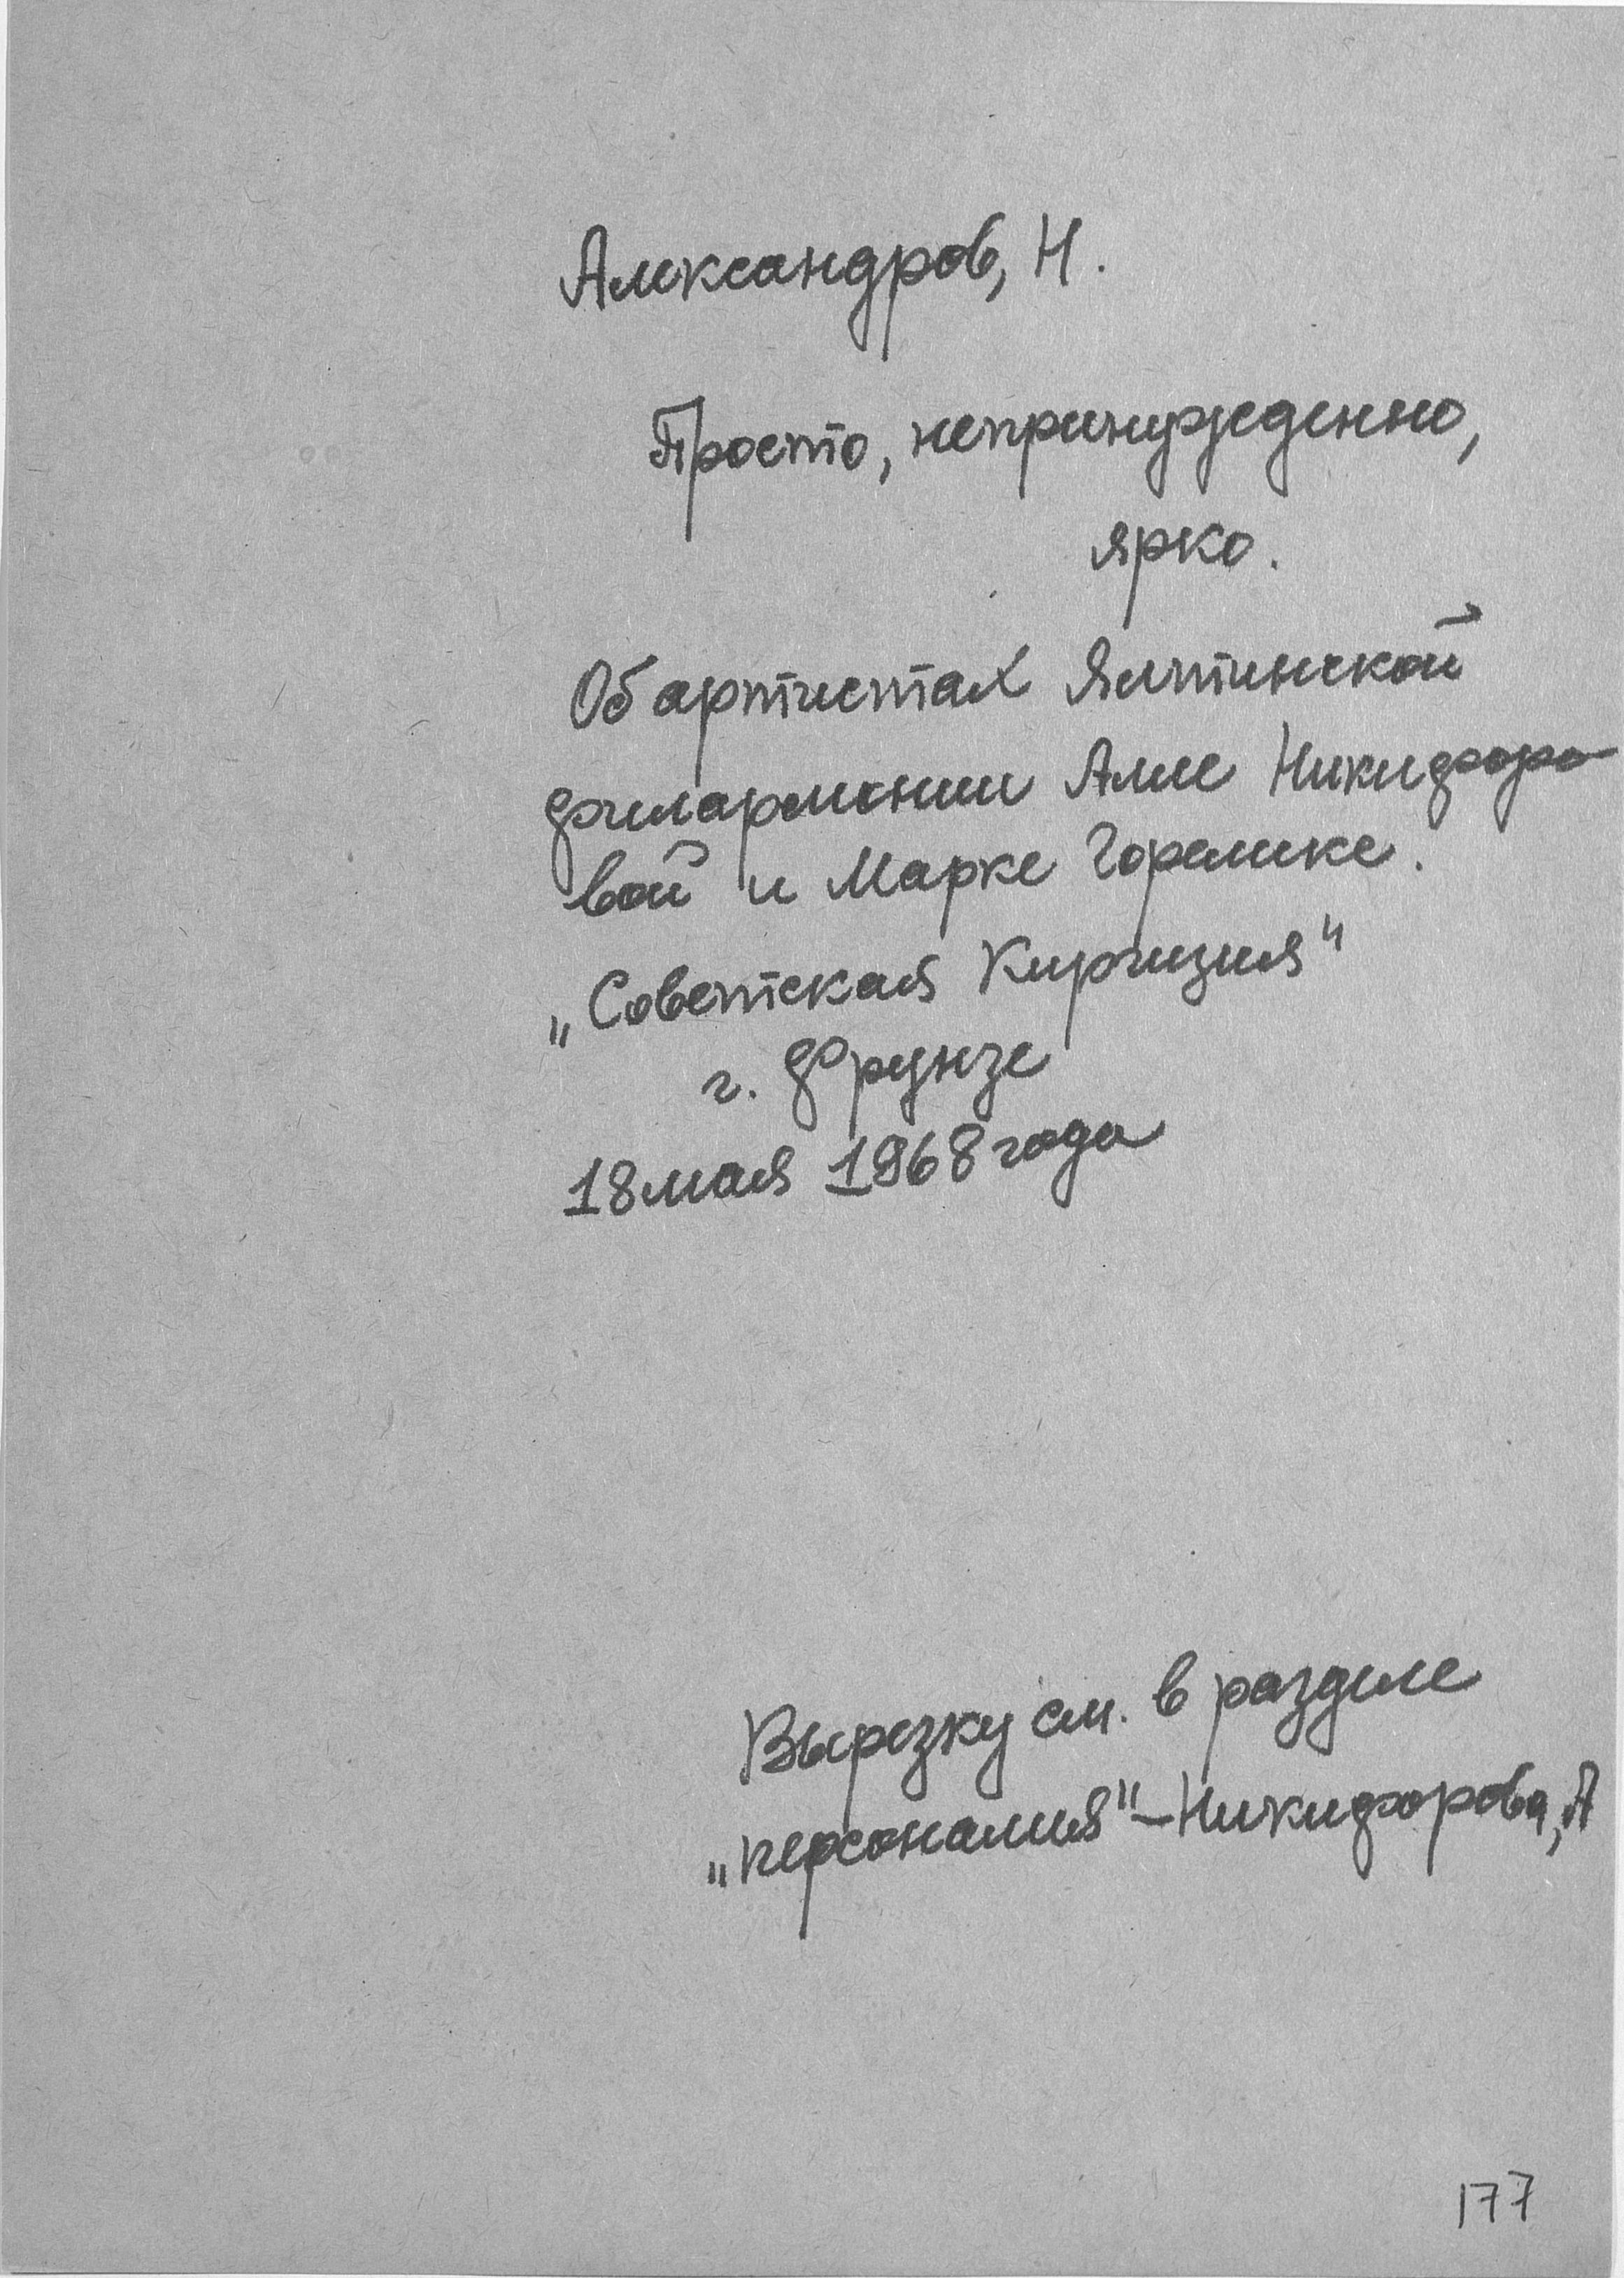 Александров, Н.
Просто, непринужденно,
ярко.
Об артистах Ялтинской
филармонии Алле Никифоро-
вой и Марке Горелике.
„Советская Киргизия"
г. Фрунзе
18 мая 1968 года
Вырезку см. в разделе
„персоналия" – Никифорова, А
177